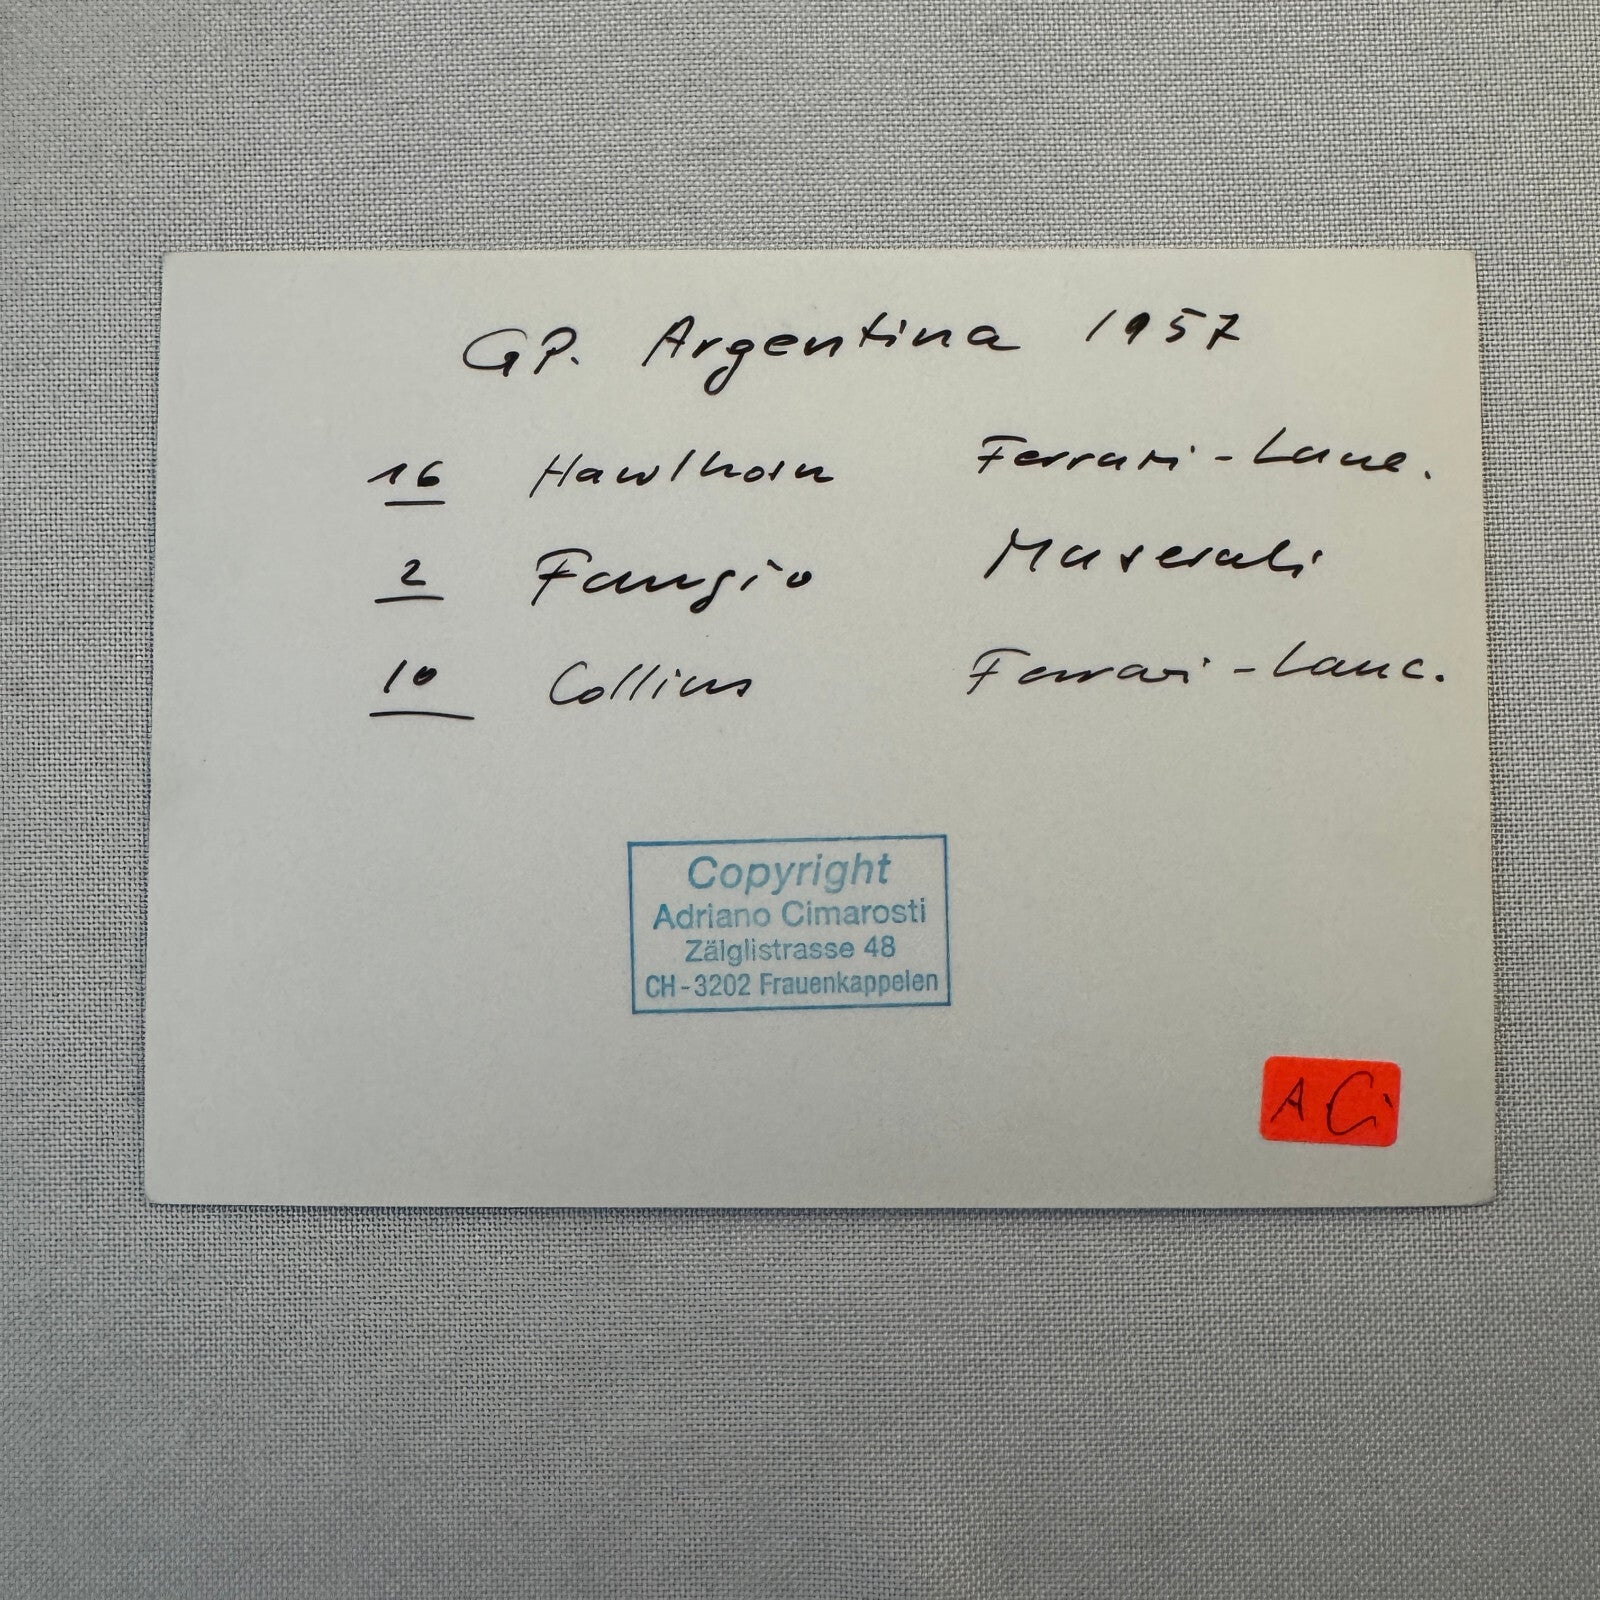 GP. Argentina 1957
16 Hawthorn Ferrari - Lanc.
2 Fangio Maserati
10 Collins Ferrari - Lanc.
Copyright
Adriano Cimarosti
Zälglistrasse 48
CH - 3202 Frauenkappelen
A Ci